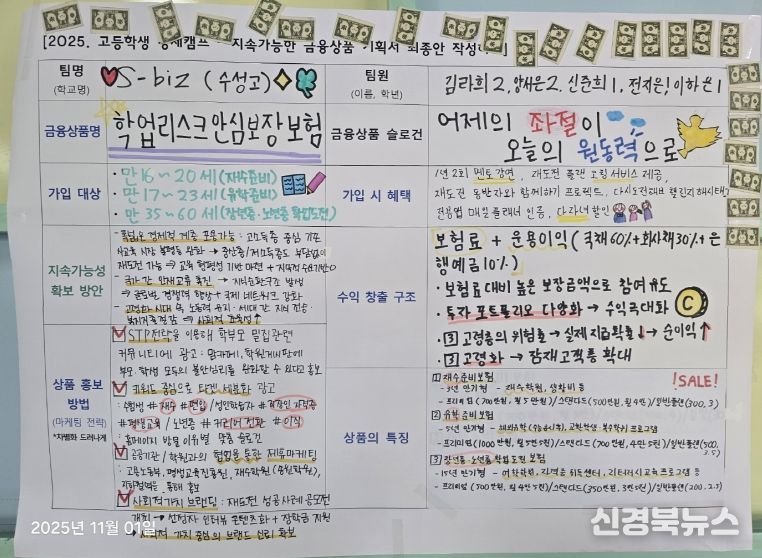 [2025. 고등학생 경제캠프 - 지속가능한 금융상품 기획서 최종안 작성
팀명
(학교명)
S-biz (수성고)
팀원
(이름, 학년)
김라희 2, 양서은 2, 신준희 1, 전지은 1, 이하은 1
금융상품명
학업리스크안심보장보험
금융상품 슬로건
어제의 좌절이
오늘의 원동력으로
가입 대상
• 만 16~20세 (재수준비)
• 만 17~23세 (유학준비)
• 만 35~60세 (장년층·노년층 학업도전)
가입 시 혜택
1년 2회 멘토강연, 재도전 플랜 코칭 서비스 제공,
재도전 동반자와 함께하기 프로젝트,
인증, 다자녀 할인
지속가능성
확보 방안
- 폭넓은 경제적 계층 포용가능: 고소득층 중심 기존
사교육 시장 불평등 완화 → 중산층/저소득층도 부담없이
재도전 가능 → 교육 형평성 기반 마련 + 지속적 수요기반
- 국가 간 인재교류 촉진 → 지식순환구조 형성
→ 글로벌 경쟁력 향상 + 국제 네트워크 강화
- 고령화 시대 속 노동력 유지·세대 간 지식 전승·
복지지출절감 → 사회적 효용성↑
수익 창출 구조
보험료 + 운용이익 (국채 60% + 회사채 30% + 은
행예금 10%)
• 보험료 대비 높은 보장금액으로 참여 유도
• 투자 포트폴리오 다양화 → 수익극대화
C
• 3 고령층의 위험률↓ → 실제 지급확률↓ → 순이익↑
• 3 고령화 → 잠재고객층 확대
상품 홍보
방법
(마케팅 전략)
*차별화 드러나게
STP전략을 이용해 학부모 밀집관련
커뮤니티에 광고: 맘카페, 학원게시판에
부모·학생 모두의 불안심리를 완화할 수 있다고 홍보
키워드 중심으로 타겟 세분화 광고
: 수험생 #재수 #편입 / 성인학습자 #직장인 자격증
#평생교육 / 노년층 #커리어 전환 #이직
: 홈페이지 방문 이유별 맞춤 슬로건
공공기관/학원과의 협업을 통한 제휴마케팅
: 고용노동부, 평생교육진흥원, 재수학원(종원학원),
통해 홍보
사회적가치 브랜딩: 재도전 성공사례 공모전
개최 → 선정자 인터뷰 콘텐츠화 + 장학금 지원
→ 사회적 가치 중심의 브랜드 신뢰 확보
상품의 특징
!SALE!
1 재수준비보험
- 3년 만기형 - 재수학원, 생활비 등
- 프리미엄 (700만원, 월 5만원) / 스탠다드 (500만원, 월 4만) / 일반플랜 (300, 3)
2 유학 준비보험
- 5년 만기형 - 해외유학(수능응시후), 교환학생, 복수학위 프로그램
- 프리미엄 (1000만원, 월 5만 5천) / 스탠다드 (700만원, 4만 5천) / 일반플랜 (500, 3.5)
3 장년층·노년층 학업도전 보험
- 15년 만기형 - 어학학원, 자격증 취득센터, 리터러시교육프로그램 등
- 프리미엄 (500만원, 월 4만 5천) / 스탠다드 (350만원, 3만 5천) / 일반플랜 (200, 2.5)
2025년 11월 01일
신경북뉴스